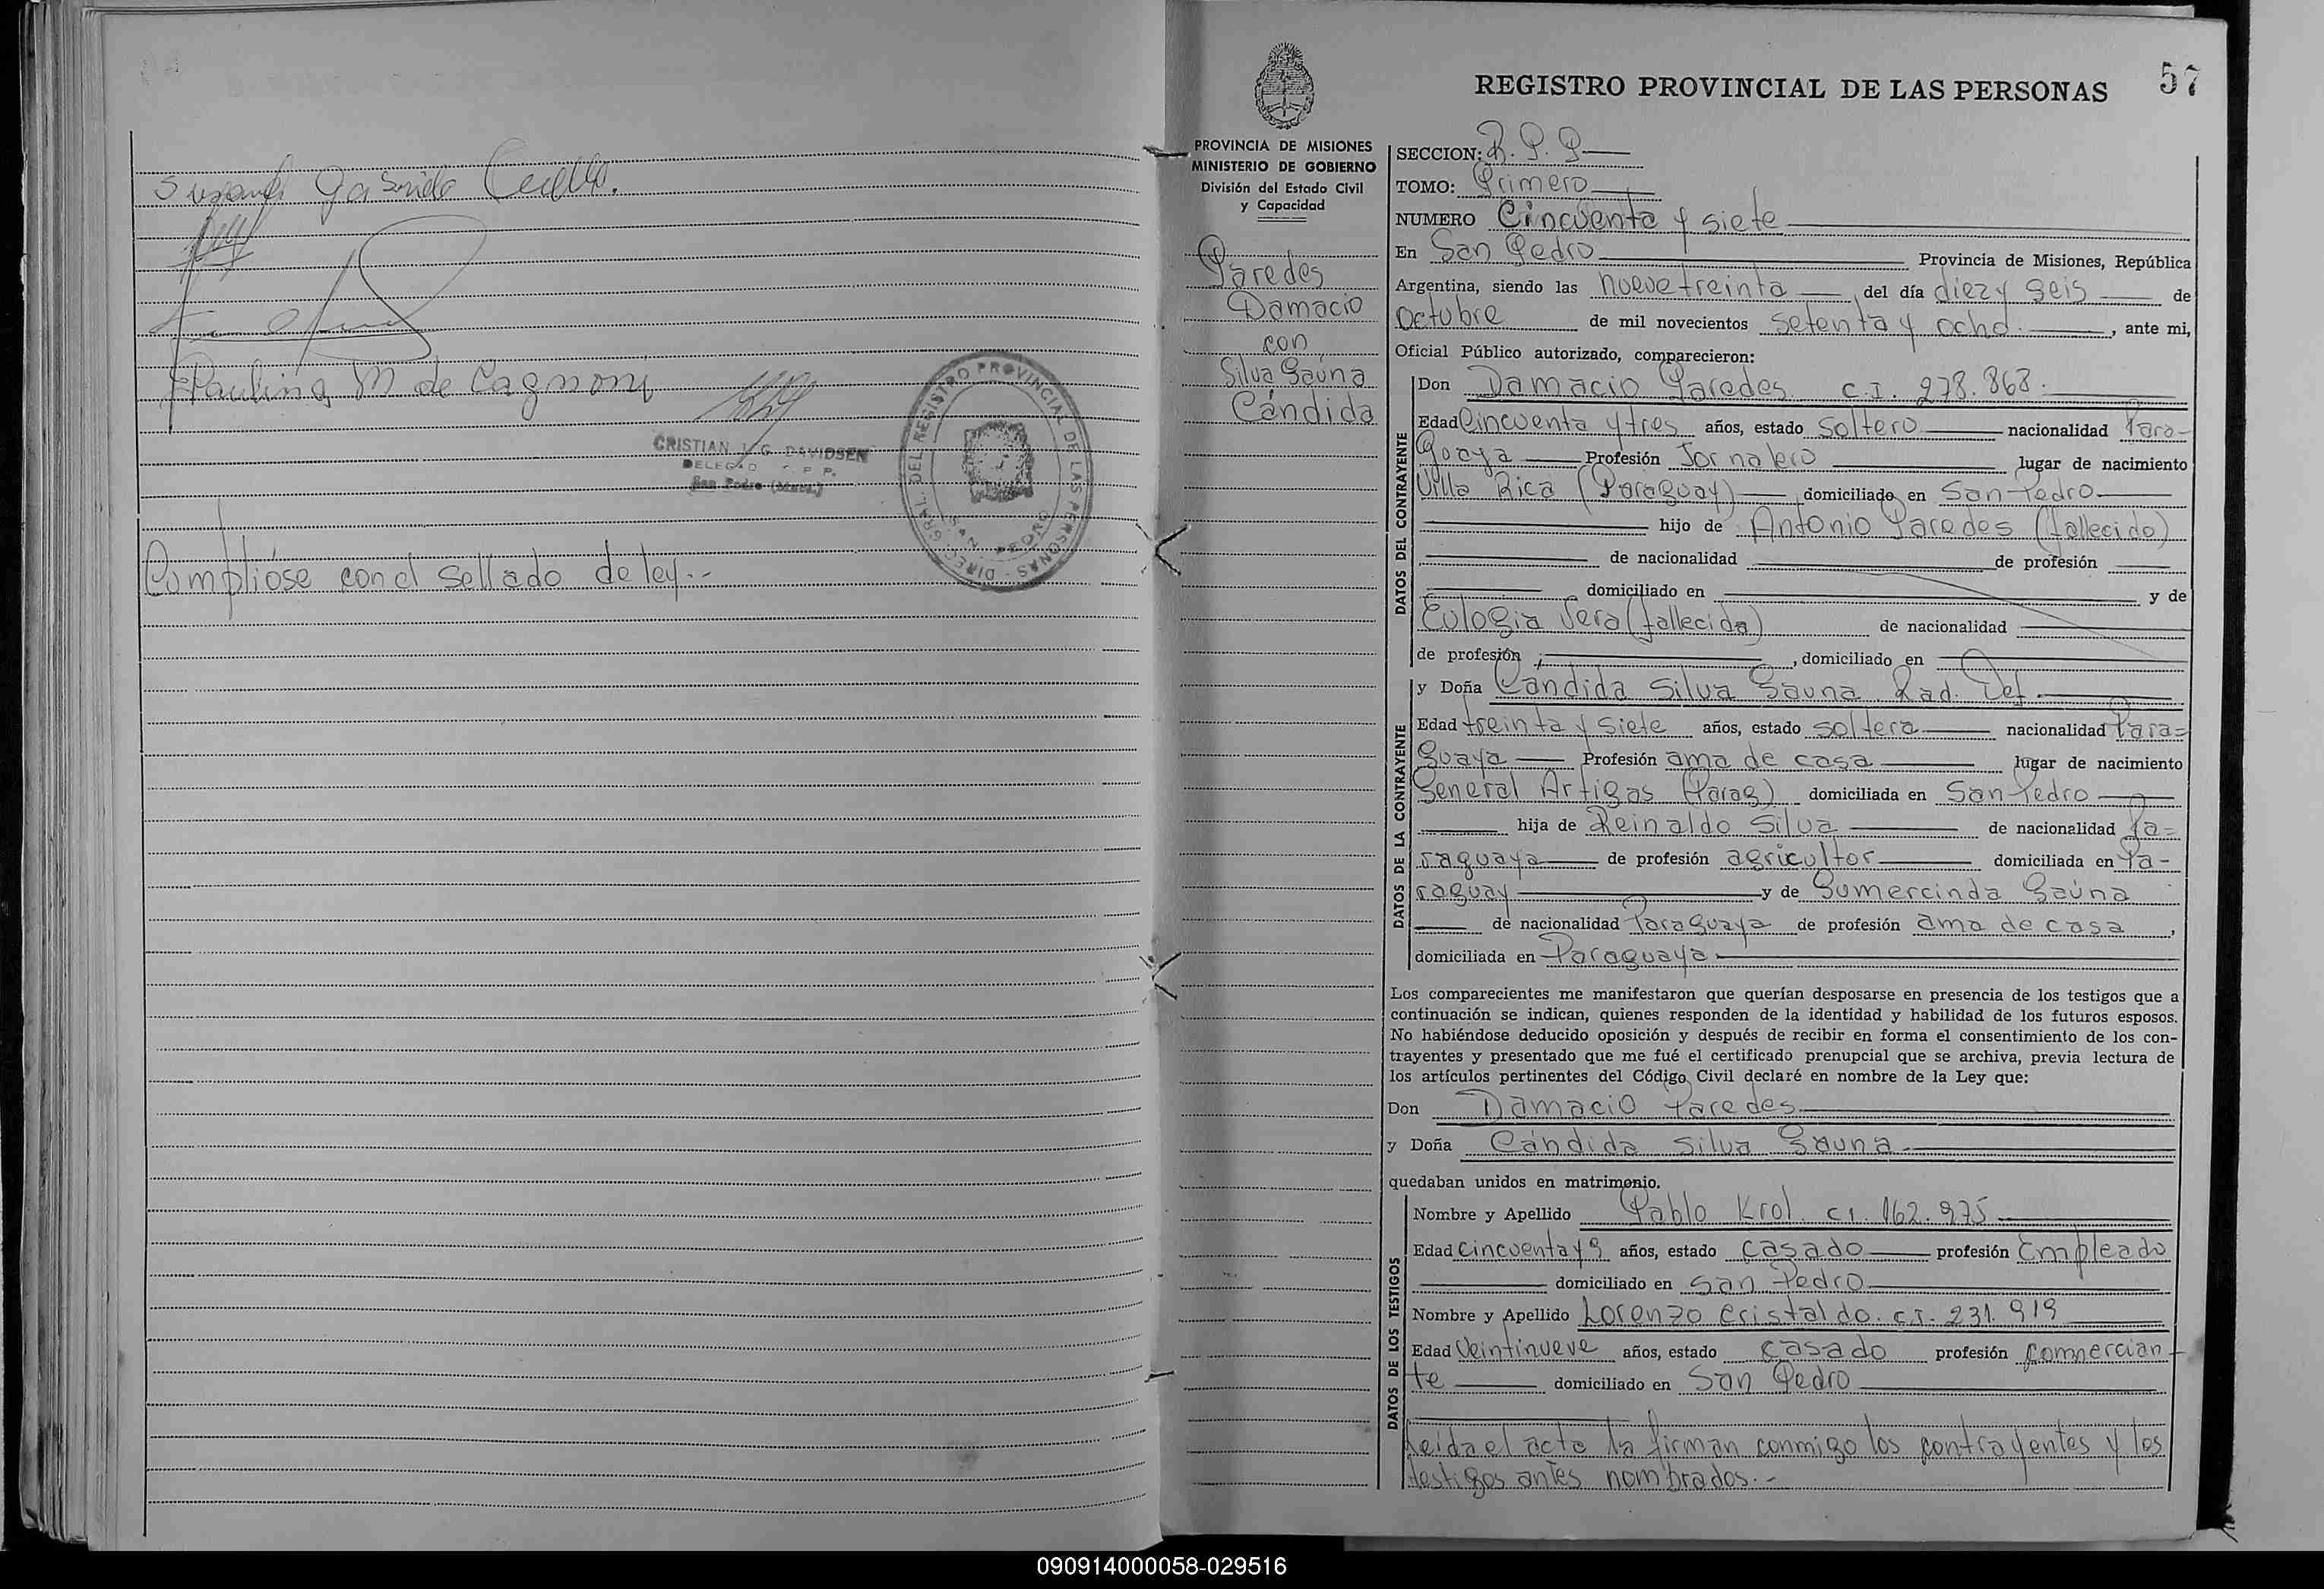 Susana Gabriela
Paulina M de Cagnoni
CRISTIAN J. G. DAVIDSEN
San Pedro (Mnes.)
DIREC. GRAL. DEL REGISTRO PROVINCIAL DE LAS PERSONAS
SAN PEDRO
Complióse con el sellado de ley.-
PROVINCIA DE MISIONES
MINISTERIO DE GOBIERNO
División del Estado Civil
y Capacidad
Paredes
Damacio
con
Silva Gaúna
Cándida
REGISTRO PROVINCIAL DE LAS PERSONAS 57
SECCION: R. P. P
TOMO: Primero
NUMERO Cincuenta y siete
En San Pedro Provincia de Misiones, República
Argentina, siendo las nueve treinta del día diez y seis de
Octubre de mil novecientos setenta y ocho, ante mi,
Oficial Público autorizado, comparecieron:
DATOS DEL CONTRAYENTE
Don Damacio Paredes C.I. 278.868.
Edad Cincuenta y tres años, estado soltero nacionalidad Para-
guaya Profesión Jornalero lugar de nacimiento
Villa Rica (Paraguay) domiciliado en San Pedro
hijo de Antonio Paredes (fallecido)
de nacionalidad de profesión
domiciliado en y de
Eulogia Vera (fallecida) de nacionalidad
de profesión, domiciliado en
DATOS DE LA CONTRAYENTE
y Doña Cándida Silva Gauna Rad. Def.
Edad treinta y siete años, estado soltera nacionalidad Para=
guaya Profesión ama de casa lugar de nacimiento
General Artigas (Parag) domiciliada en San Pedro
hija de Reinaldo Silva de nacionalidad Pa=
raguaya de profesión agricultor domiciliada en Pa-
raguay y de Gumercinda Gaúna
de nacionalidad Paraguaya de profesión ama de casa,
domiciliada en Paraguaya
Los comparecientes me manifestaron que querían desposarse en presencia de los testigos que a
continuación se indican, quienes responden de la identidad y habilidad de los futuros esposos.
No habiéndose deducido oposición y después de recibir en forma el consentimiento de los con-
trayentes y presentado que me fué el certificado prenupcial que se archiva, previa lectura de
los artículos pertinentes del Código Civil declaré en nombre de la Ley que:
Don Damacio Paredes
y Doña Cándida Silva Gauna
quedaban unidos en matrimonio.
DATOS DE LOS TESTIGOS
Nombre y Apellido Pablo Krol C.I. 162.975
Edad Cincuenta y 9 años, estado casado profesión Empleado
domiciliado en San Pedro
Nombre y Apellido Lorenzo Cristaldo. C.I. 231.919
Edad Veintinueve años, estado casado profesión comercian
te domiciliado en San Pedro
Leida el acta la firman conmigo los contrayentes y los
testigos antes nombrados.-
090914000058-029516